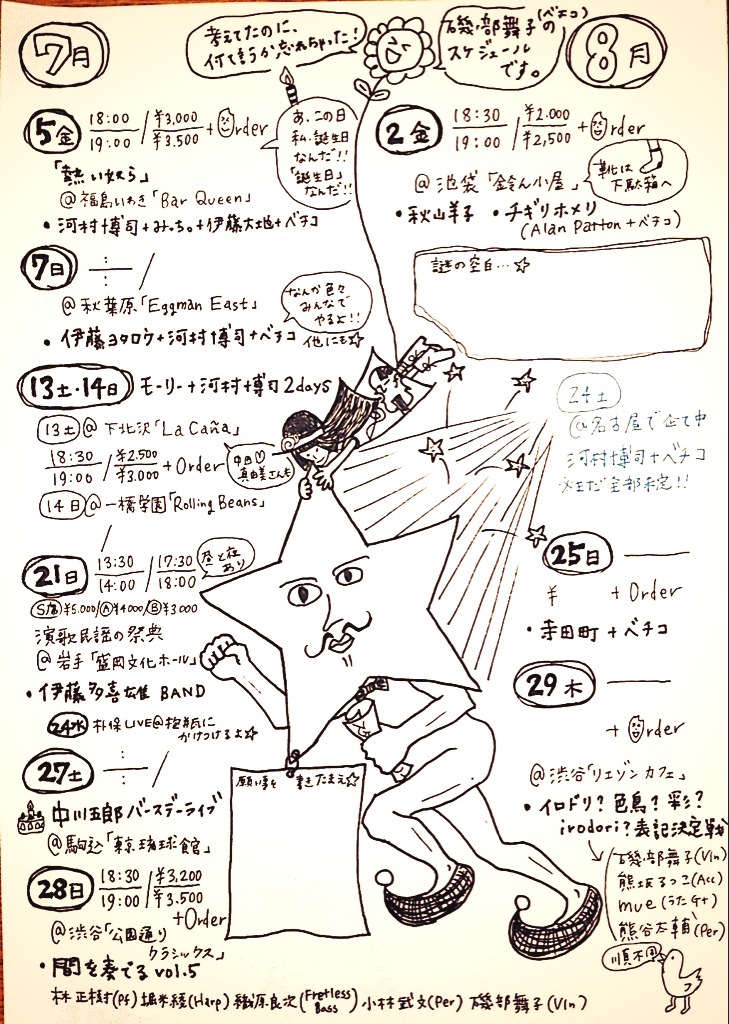 7月
考えてたのに、
何て言うか忘れちゃった！
磯部舞子(ベチコ)の
スケジュール
です。
8月
5金 18:00/19:00 / ¥3,000/¥3.500 + Order
あ、この日
私、誕生日
なんだ!!
「誕生日」
なんだ!!
「熱い奴ら」
@福島いわき「Bar Queen」
・河村博司+みっち。+伊藤大地+ベチコ
7日 : /
@秋葉原「Eggman East」
なんか色々
みんなで
やるよ!!
・伊藤ヨタロウ+河村博司+ベチコ 他にも☆
13土・14日 モーリー+河村博司2days
13土 @下北沢「La Caña」
18:30/19:00 / ¥2.500/¥3.000 +Order
中田♡
真由美さんも
14日 @一橋学園「Rolling Beans」
/
21日 13:30/14:00 / 17:30/18:00
昼と夜
あり
S席 ¥5.000/A ¥4000/B ¥3000
演歌民謡の祭典
@岩手「盛岡文化ホール」
・伊藤多喜雄 BAND
24水 朴保LIVE@拍
かけつけるよ☆
27土 : /
中川五郎バースデーライブ
@駒込「東京琉球館」
28日 18:30/19:00 / ¥3,200/¥3.500
+Order
@渋谷「公園通り
クラシックス」
・間を奏でる vol.5
林正樹(Pf) 堀米綾(Harp) 織原良次(Fretless Bass) 小林武文(Per) 磯部舞子(Vln)
願い事を 書きたまえ☆
2金 18:30/19:00 / ¥2.000/¥2,500 + Order
@池袋「鈴ん小屋」
靴は
下駄箱へ
・秋山羊子 ・チギリホメリ
(Alan Patton+ベチコ)
謎の空白…☆
24土
@名古屋で企て中
河村博司+ベチコ
※まだ全部未定!!
25日 ―
¥ + Order
・寺田町+ベチコ
29木 ―
+ Order
@渋谷「リエゾンカフェ」
・イロドリ？色鳥？彩？
irodori？表記決定戦
磯部舞子(Vln)
熊坂るつこ(Acc)
mue(うたGt)
熊谷太輔(Per)
順不同